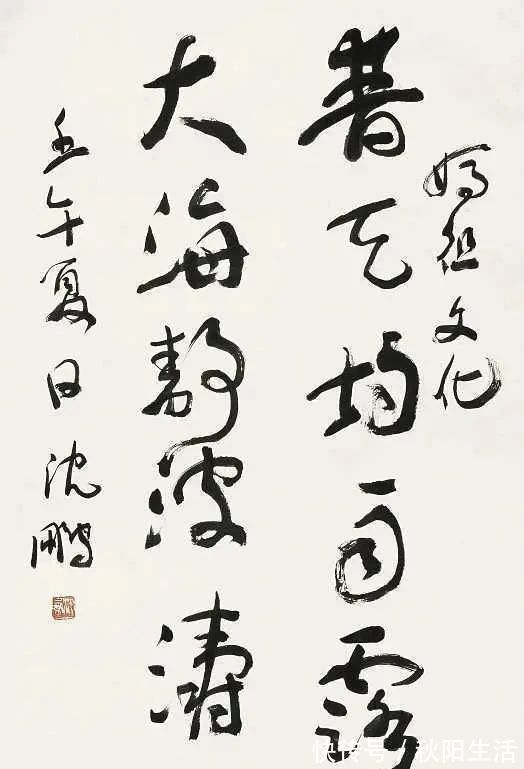 妈祖文化
普天均雨露
大海静波涛
壬午夏日 沈鹏
快传号 / 秋阳生活